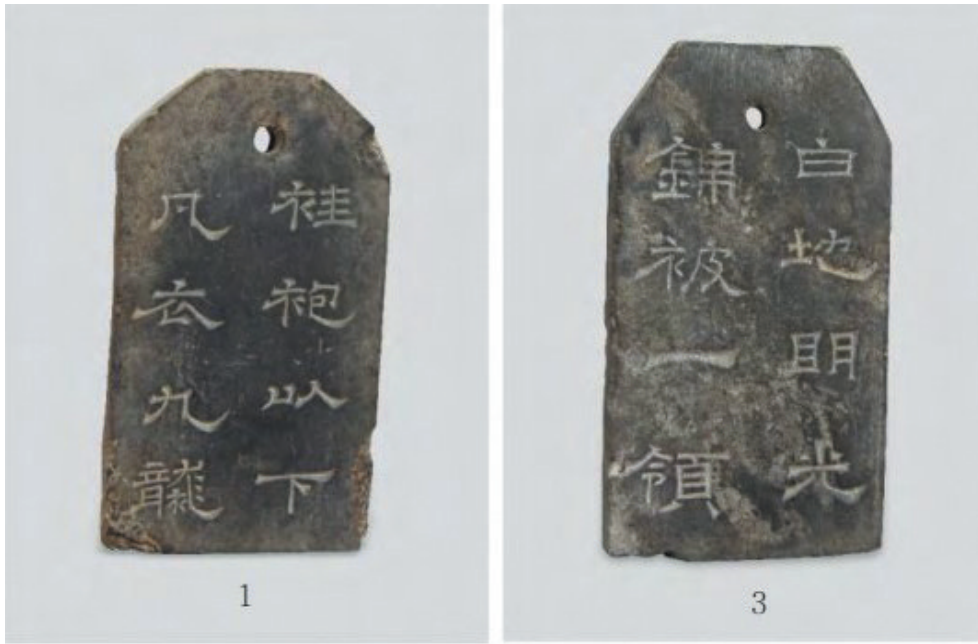 袿袍以下
凡衣九襲
1
白地明光
錦被一領
3